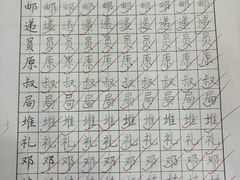 邮邮邮邮邮邮邮邮邮
递递递递递递递递递
员员员员员员员员员
原原原原原原原原原
叔叔叔叔叔叔叔叔叔
局局局局局局局局局
堆堆堆堆堆堆堆堆堆
礼礼礼礼礼礼礼礼礼
邓邓邓邓邓邓邓邓邓